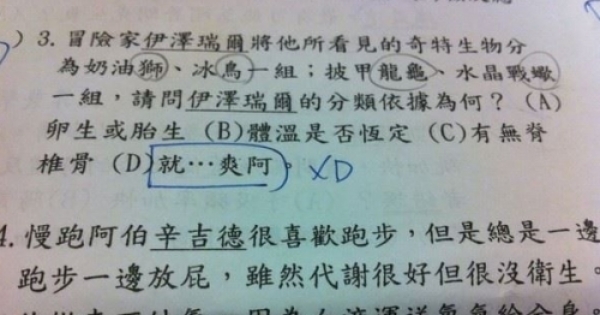 ) 3. 冒險家伊澤瑞爾將他所看見的奇特生物分
為奶油獅、冰鳥一組；披甲龍龜、水晶戰蠍
一組，請問伊澤瑞爾的分類依據為何？(A)
卵生或胎生 (B)體溫是否恆定 (C)有無脊
椎骨 (D)就…爽阿。XD
4. 慢跑阿伯辛吉德很喜歡跑步，但是總是一邊
跑步一邊放屁，雖然代謝很好但很沒衛生。